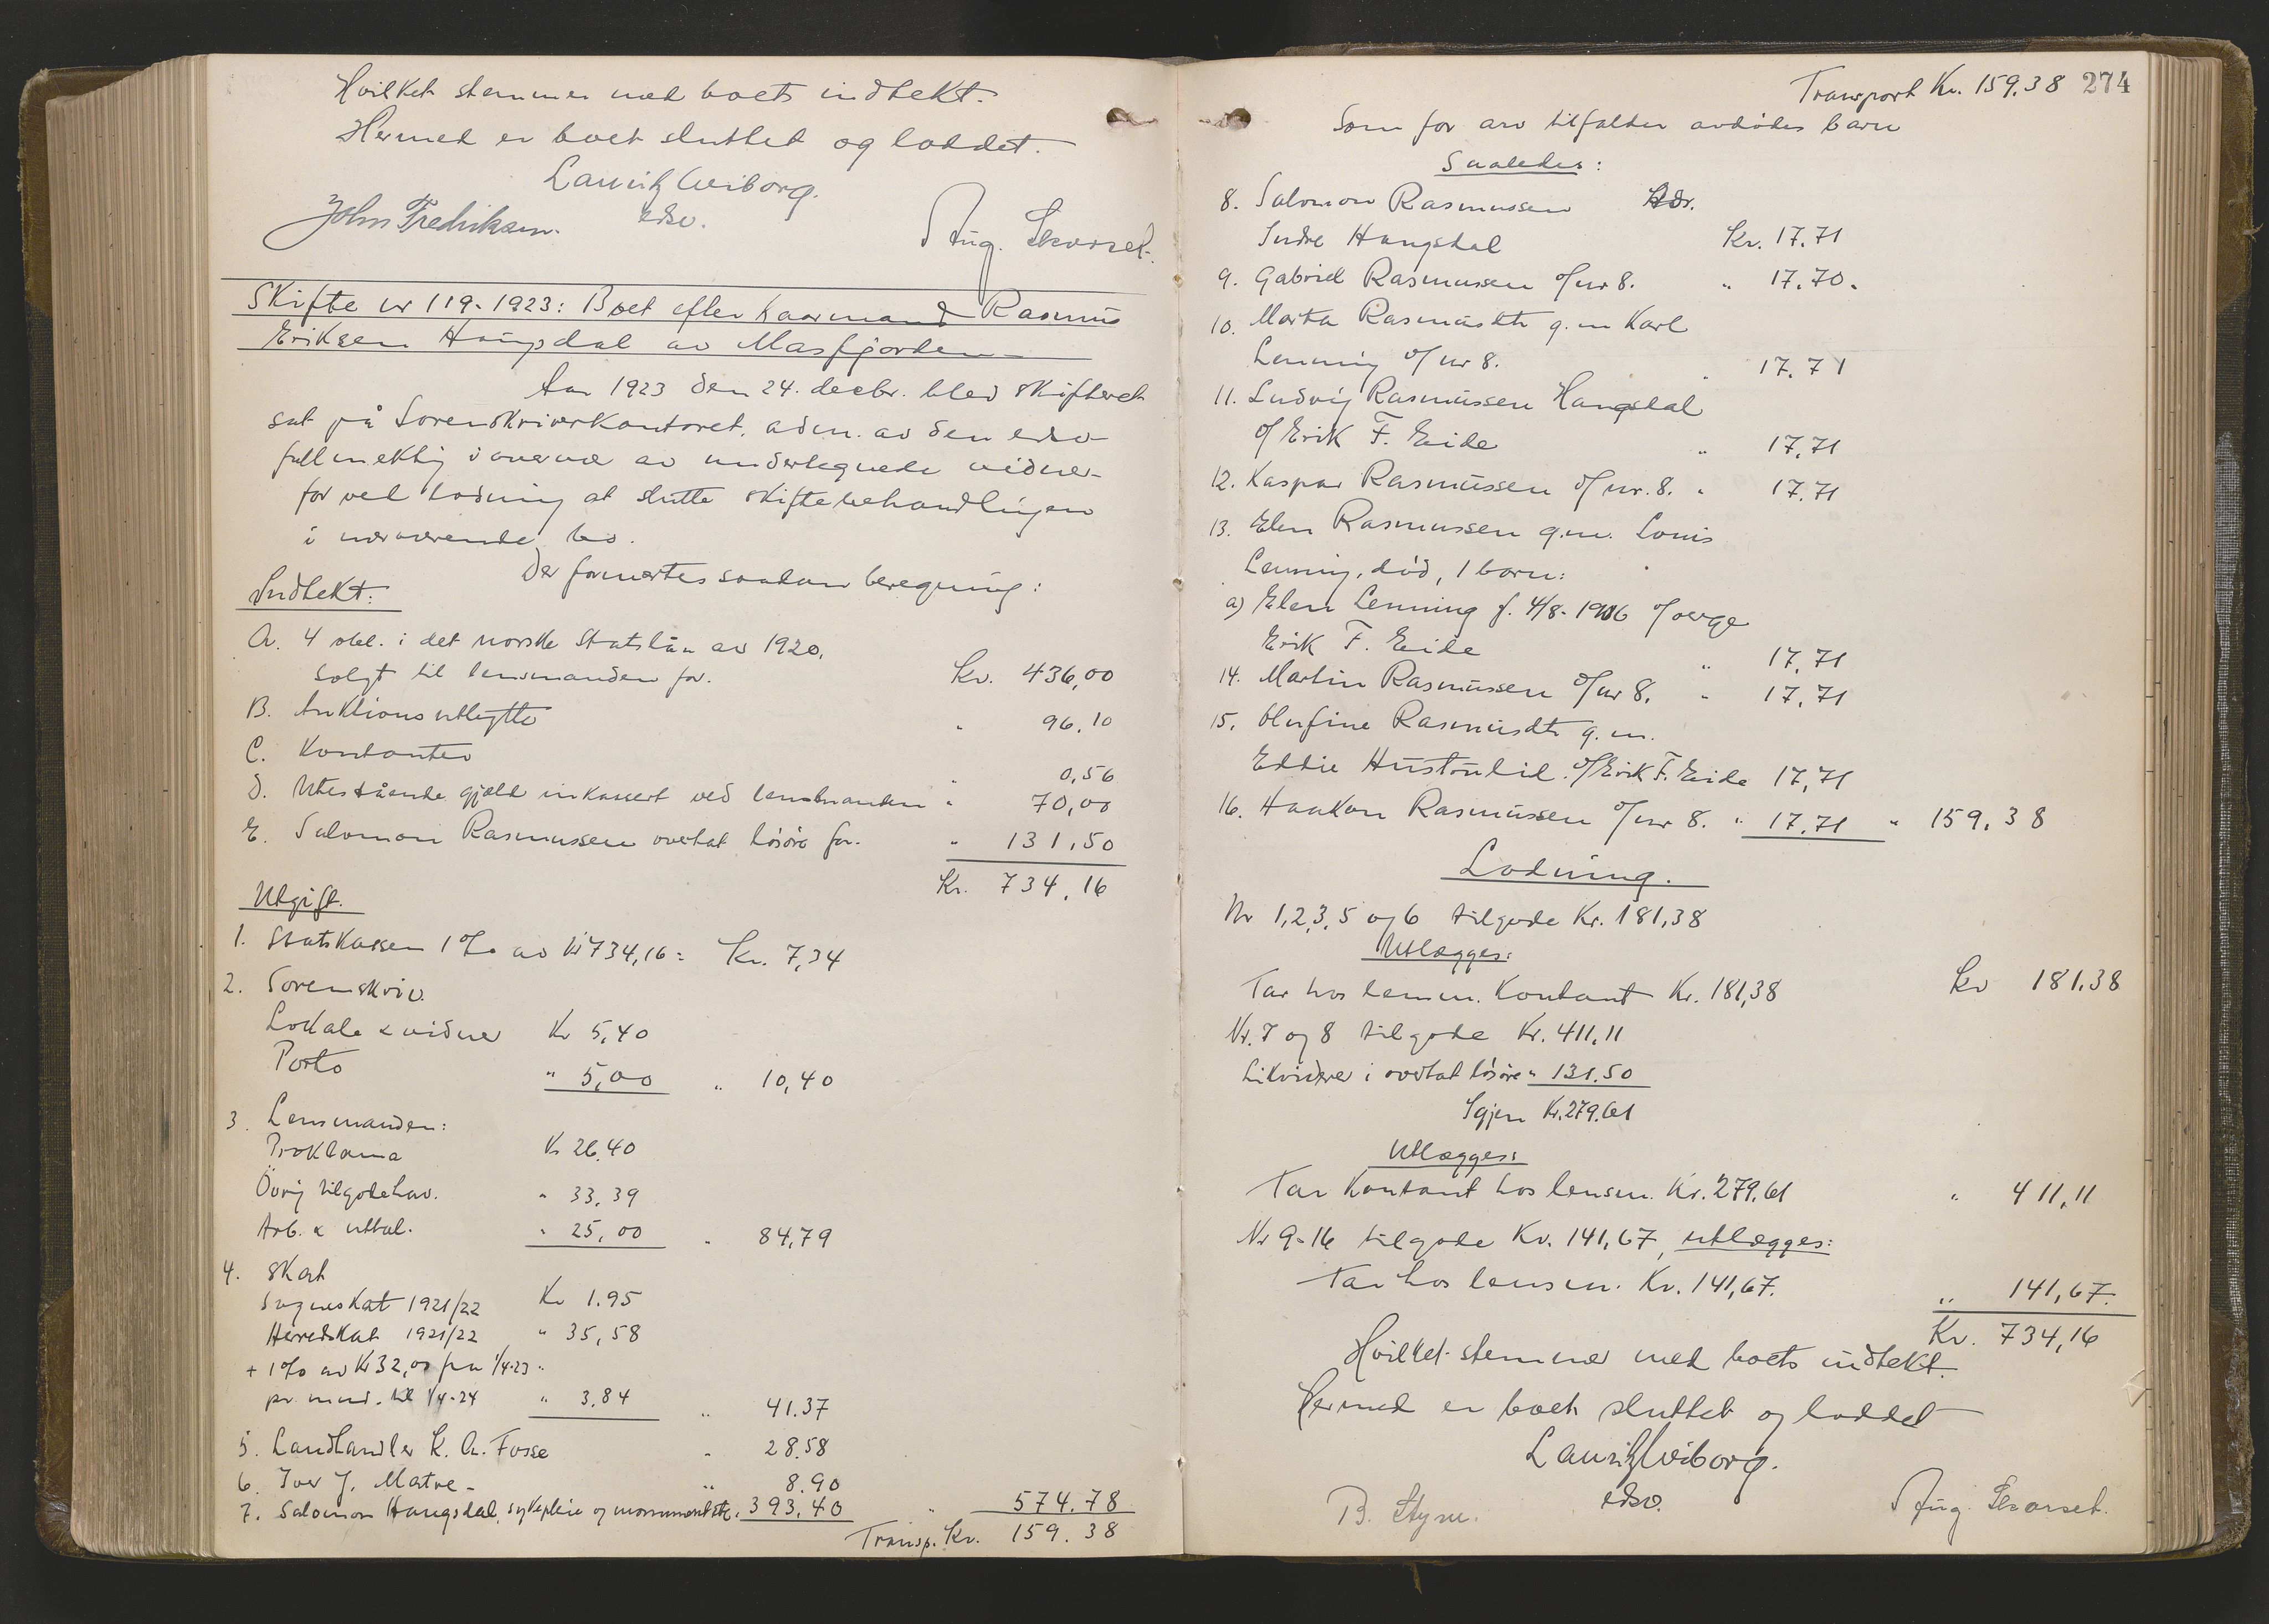 Hvilket stemmer med boets indtekt.
Hermed er boet sluttet og loddet.
Lauritz Wiborg.
edsv.
John Fredriksen.
Aug. Skorset.
Skifte nr 119-1923: Boet efter kaarmand Rasmus
Eriksen Haugsdal av Masfjorden
Aar 1923 den 24. decbr. blev skifteret
sat på Sorenskriverkontoret, adm. av den edsv
fullmektig i overvær av undertegnede vidner
for ved lodning at slutte skiftebehandlingen
i nærværende bo.
Der formertes saadan beregning:
Indtekt:
A. 4 obl. i det norske Statslån av 1920,
solgt til lensmanden for. Kr. 436,00
B. Auktionsutbytte " 96,10
C. Kontanter " 0,56
D. Utestående gjæld inkassert ved lensmanden " 70,00
E. Salomon Rasmussen overtat løsøre for. " 131,50
Kr. 734,16
Utgift.
1. Statskassen 1 % av kr 734,16 = Kr. 7,34
2. Sorenskriv.
Lokale & vidner Kr 5,40
Porto " 5,00 " 10,40
3. Lensmanden:
Proklama Kr 26,40
Övrig tilgodehav. " 33,39
Arb. & utbal. " 25,00 " 84,79
4. Skat
Sogneskat 1921/22 Kr 1.95
Heredskat 1921/22 " 35,58
+ 1 % av Kr 32,00 fra 1/4-23
pr. mnd. til 1/4-24 " 3,84 " 41.37
5. Landhandler K. A. Fosse " 28.58
6. Iver J. Matre " 8.90
7. Salomon Haugsdal, sykepleie og monument etc. 393,40 " 574.78
Transp. Kr. 159.38
274
Transport Kr. 159.38
Som for arv tilfalder avdødes barn
Saaledes:
8. Salomon Rasmussen
Indre Haugsdal Kr. 17.71
9. Gabriel Rasmussen o/nr 8. " 17.70.
10. Marta Rasmusdtr g. m Karl
Lenning o/ nr 8. " 17.71
11. Ludvig Rasmussen Haugsdal
o/ Erik F. Eide " 17,71
12. Kaspar Rasmussen o/ nr. 8. " 17.71
13. Elen Rasmussen g.m. Louis
Lenning, død, 1 barn:
a) Elen Lenning f. 4/8-1906 o/ verge
Erik F. Eide " 17,71
14. Martin Rasmussen o/nr 8. " 17,71
15. Olufine Rasmusdtr g. m.
Eddie Hustulid o/ Erik F. Eide 17,71
16. Haakon Rasmussen o/nr 8. " 17.71 " 159.38
Lodning.
Nr 1,2,3,5 og 6 tilgode Kr. 181,38
Utlægges:
Tar hos lensm. Kontant Kr. 181,38 Kr 181.38
Nr. 7 og 8 tilgode Kr. 411,11
Likvidrer i overtat løsøre " 131.50
Igjen Kr. 279.61
Utlægges:
Tar kontant hos lensm. Kr. 279.61 " 411,11
Nr 9-16 tilgode Kr. 141,67, utlægges:
Tar hos lensm. Kr. 141,67. " 141,67.
Kr. 734,16
Hvilket stemmer med boets indtekt.
Hermed er boet sluttet og loddet
Lauritz Wiborg.
edsv.
B. Styve.
Aug. Skorset.